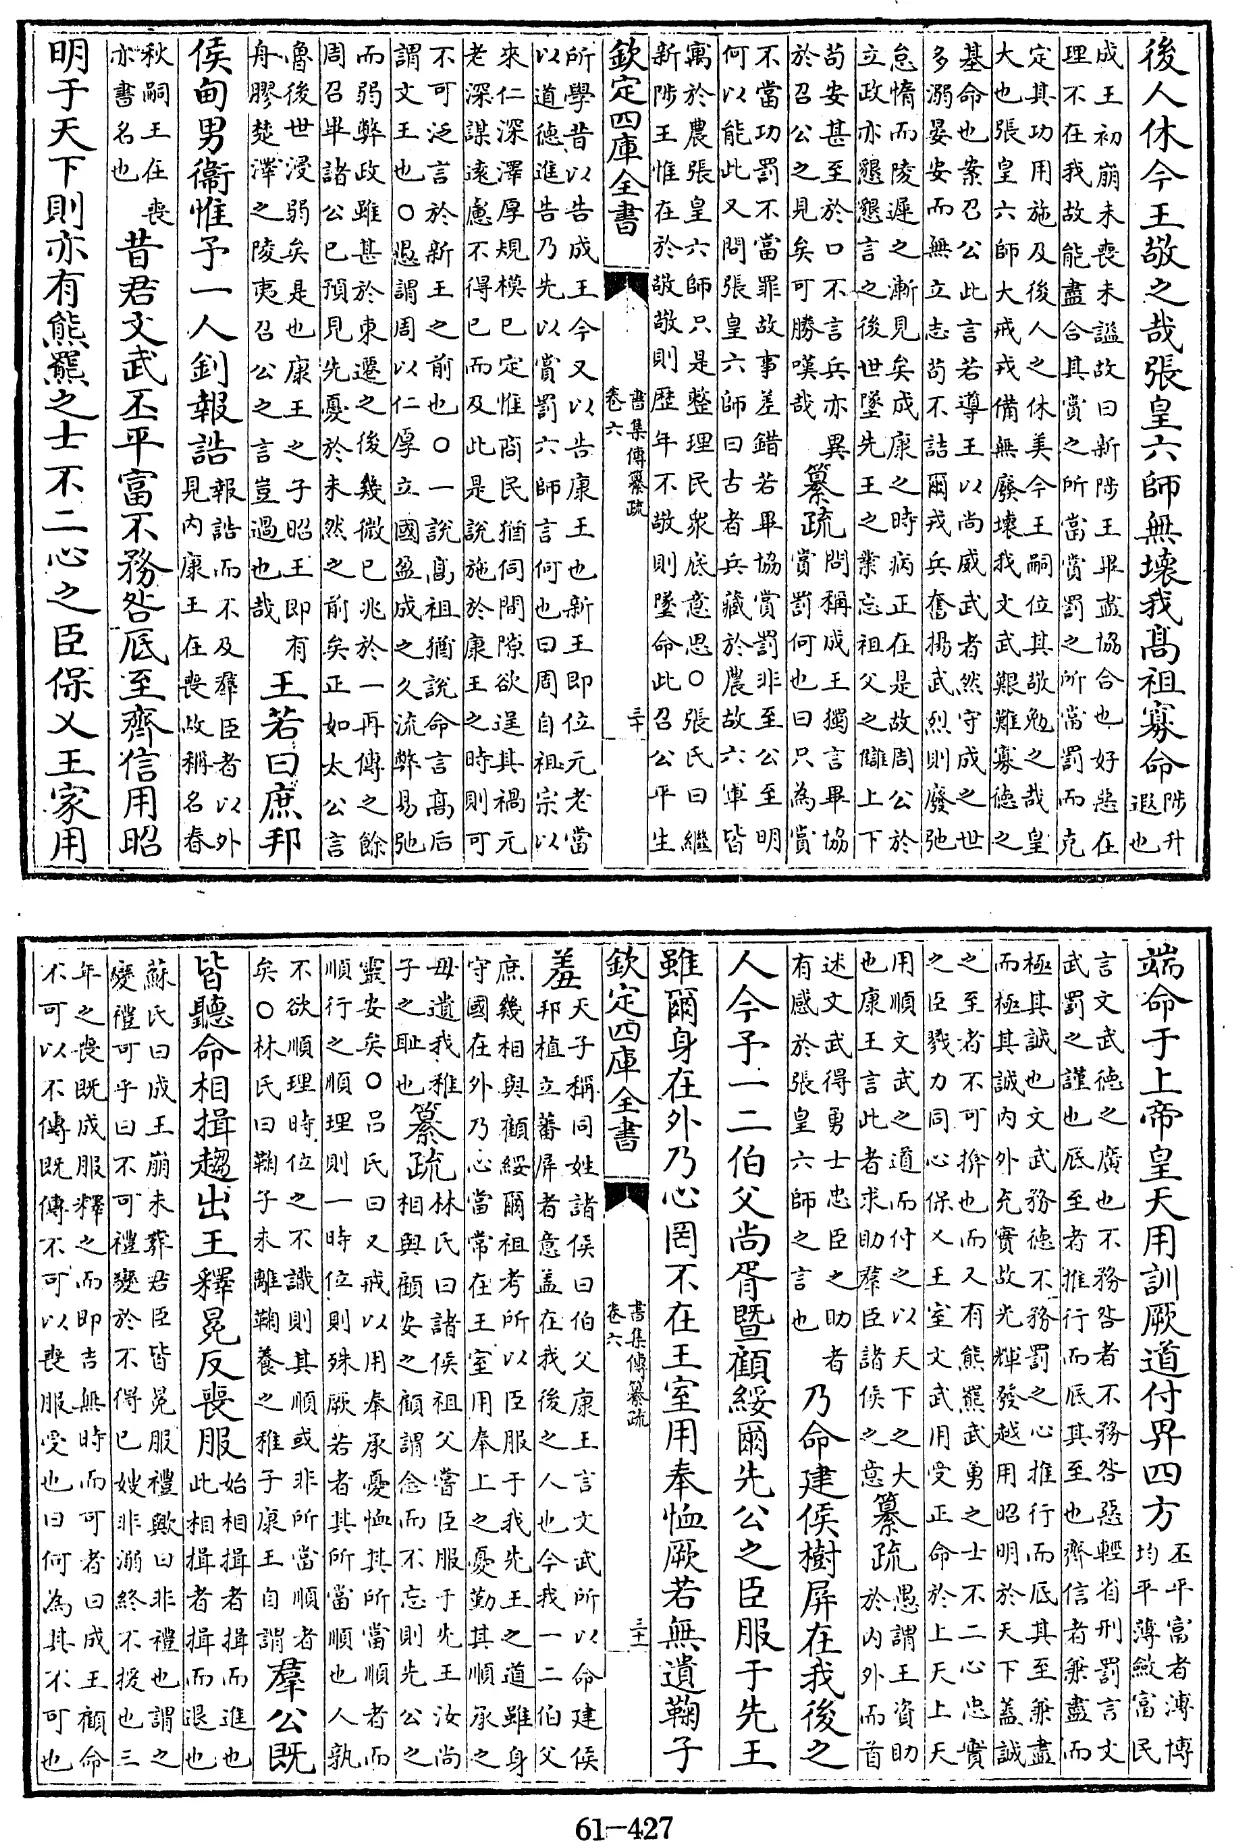 後人休今王敬之哉張皇六師無壞我髙祖寡命
陟升
遐也
成王初崩未喪未謚故曰新陟王畢盡協合也好惡在
理不在我故能盡合其賞之所當賞罰之所當罰而克
定其功用施及後人之休美今王嗣位其敬勉之哉皇
大也張皇六師大戒戎備無廢壞我文武艱難寡德之
基命也案召公此言若導王以尚威武者然守成之世
多溺晏安而無立志苟不詰爾戎兵奮揚武烈則廢弛
怠惰而陵遲之漸見矣成康之時病正在是故周公於
立政亦懇懇言之後世墜先王之業忘祖父之讎上下
苟安甚至於口不言兵亦異
於召公之見矣可勝嘆哉
纂疏
問稱成王獨言畢協
賞罰何也曰只為賞
不當功罰不當罪故事差錯若畢協賞罰非至公至明
何以能此又問張皇六師曰古者兵藏於農故六軍皆
寓於農張皇六師只是整理民衆底意思○張氏曰繼
新陟王惟在於敬敬則歴年不敬則墜命此召公平生
欽定四庫全書
書集傳纂疏
卷六
三十
所學昔以告成王今又以告康王也新王即位元老當
以道德進告乃先以賞罰六師言何也曰周自祖宗以
來仁深澤厚規模已定惟商民猶伺間隙欲逞其禍元
老深謀逺慮不得已而及此是說施於康王之時則可
不可泛言於新王之前也○一說髙祖猶說命言髙后
謂文王也○愚謂周以仁厚立國盈成之久流弊易弛
而弱弊政雖甚於東遷之後幾微已兆於一再傳之餘
周召畢諸公已預見先憂於未然之前矣正如太公言
魯後世浸弱矣是也康王之子昭王即有
舟膠楚澤之陵夷召公之言豈過也哉
王若曰庶邦
侯甸男衞惟予一人釗報誥
報誥而不及羣臣者以外
見内康王在喪故稱名春
秋嗣王在喪
亦書名也
昔君文武丕平富不務咎厎至齊信用昭
明于天下則亦有熊羆之士不二心之臣保乂王家用
端命于上帝皇天用訓厥道付畀四方
丕平富者溥博
均平薄斂富民
言文武德之廣也不務咎者不務咎惡輕省刑罰言文
武罰之謹也厎至者推行而厎其至也齊信者兼盡而
極其誠也文武務德不務罰之心推行而厎其至兼盡
而極其誠内外充實故光輝發越用昭明於天下蓋誠
之至者不可揜也而又有熊羆武勇之士不二心忠實
之臣戮力同心保乂王室文武用受正命於上天上天
用順文武之道而付之以天下之大
也康王言此者求助羣臣諸侯之意
纂疏
愚謂王資助
於内外而首
述文武得勇士忠臣之助者
有感於張皇六師之言也
乃命建侯樹屏在我後之
人今予一二伯父尚胥暨顧綏爾先公之臣服于先王
雖爾身在外乃心罔不在王室用奉恤厥若無遺鞠子
欽定四庫全書
書集傳纂疏
卷六
三十一
羞
天子稱同姓諸侯曰伯父康王言文武所以命建侯
邦植立蕃屏者意蓋在我後之人也今我一二伯父
庶幾相與顧綏爾祖考所以臣服于我先王之道雖身
守國在外乃心當常在王室用奉上之憂勤其順承之
毋遺我稚
子之恥也
纂疏
林氏曰諸侯祖父嘗臣服于先王汝尚
相與顧安之顧謂念而不忘則先公之
靈安矣○吕氏曰又戒以用奉承憂恤其所當順者而
順行之順理則一時位則殊厥若者其所當順也人孰
不欲順理時位之不識則其順或非所當順者
矣○林氏曰鞠子未離鞠養之稚子康王自謂
羣公既
皆聽命相揖趨出王釋冕反喪服
始相揖者揖而進也
此相揖者揖而退也
蘇氏曰成王崩未葬君臣皆冕服禮歟曰非禮也謂之
變禮可乎曰不可禮變於不得已嫂非溺終不援也三
年之喪既成服釋之而即吉無時而可者曰成王顧命
不可以不傳既傳不可以喪服受也曰何為其不可也
61-427